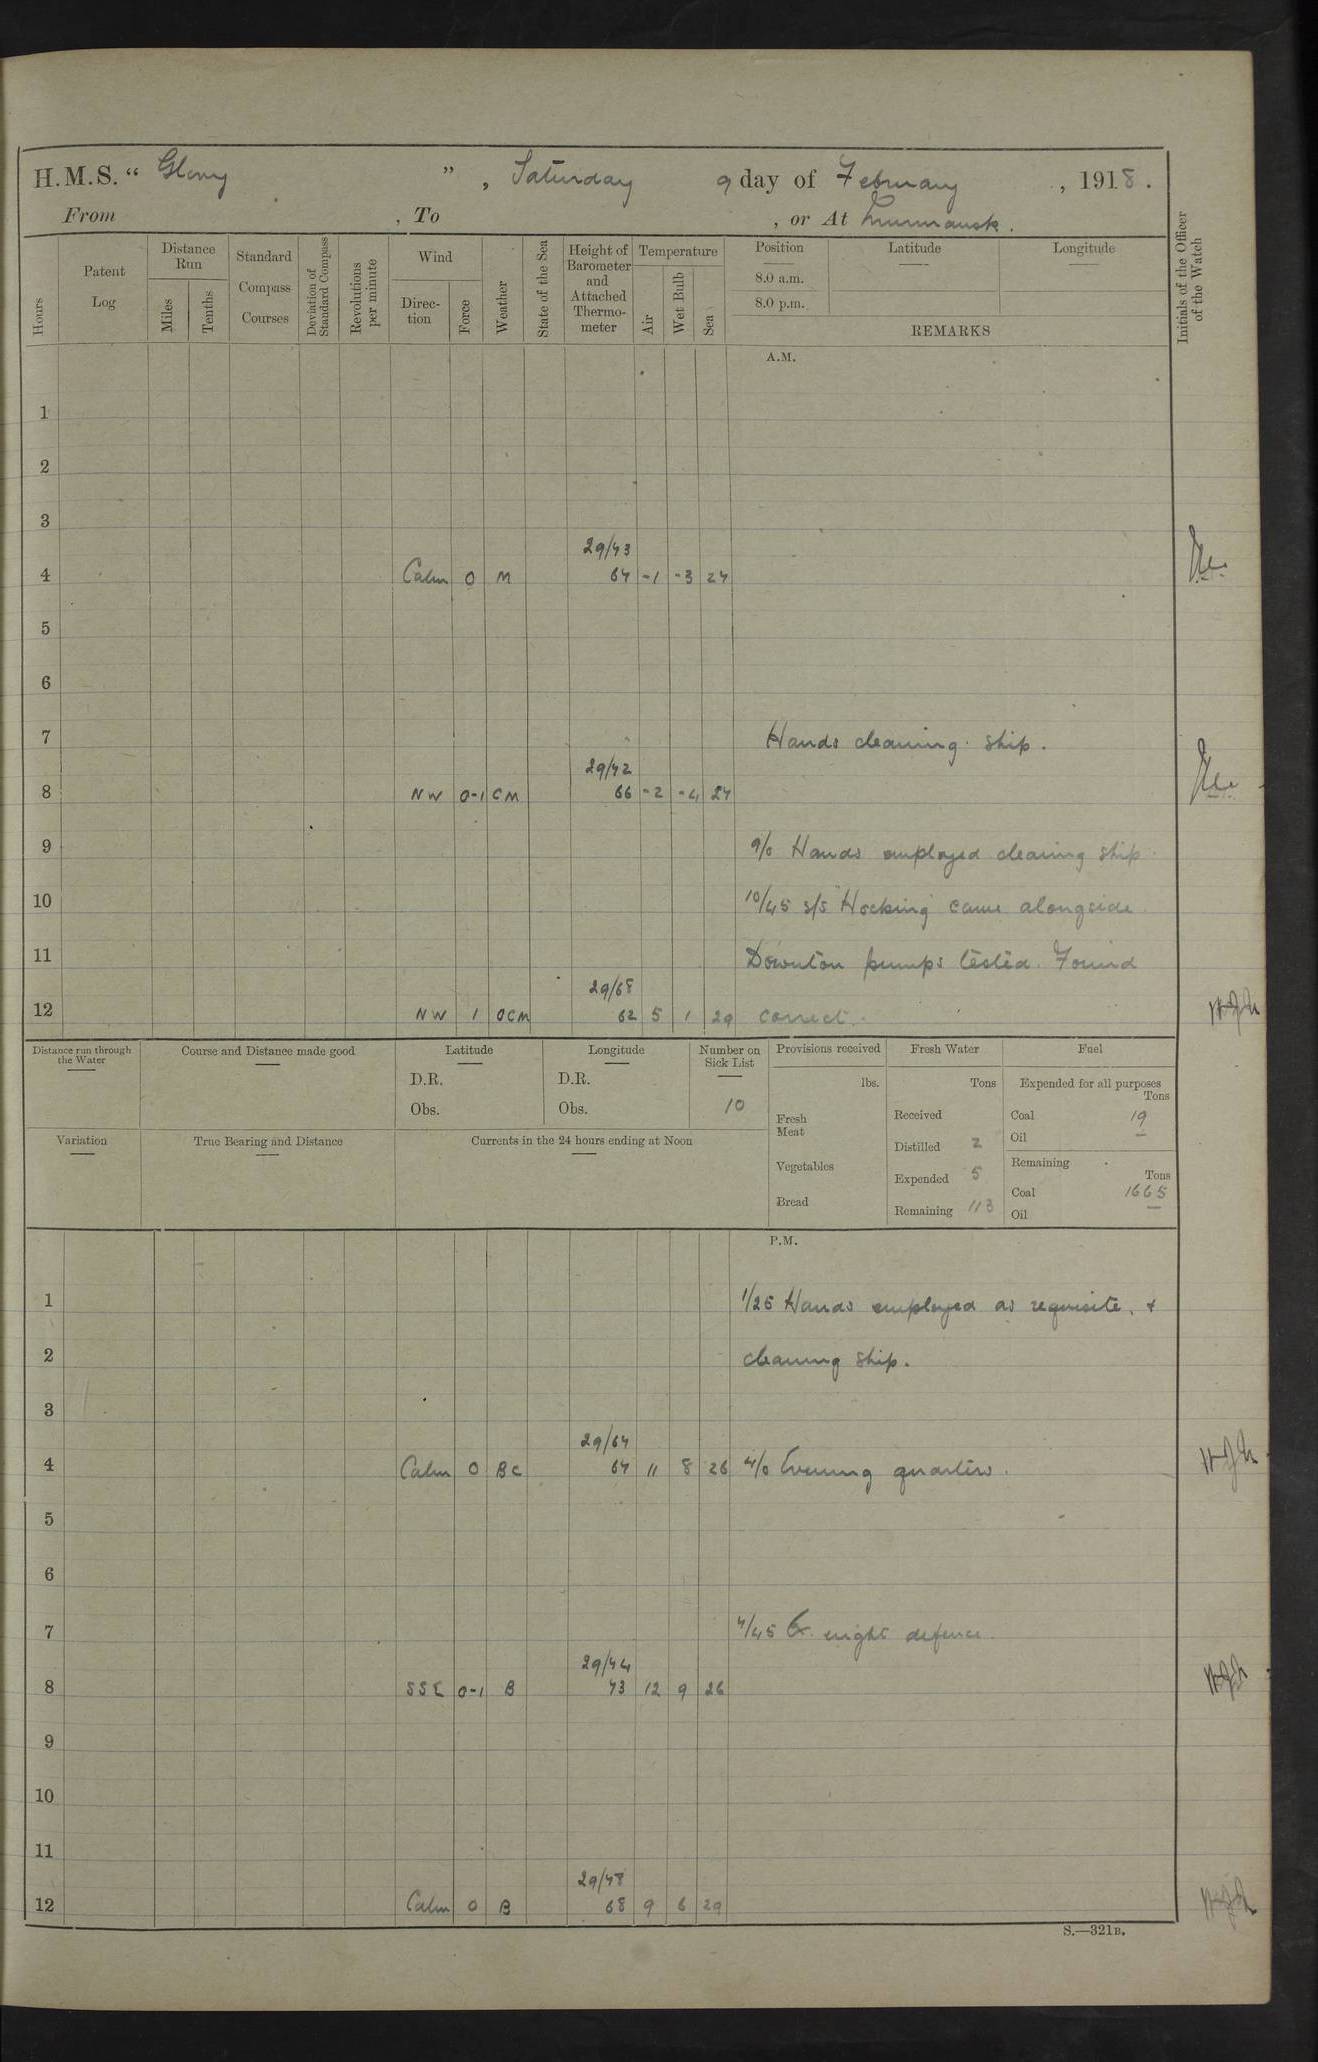 H.M.S. " Glory " , Saturday 9 day of February , 1918 .
From , To , or At Murmansk .
Hours
Patent Log
Distance Run
Miles
Tenths
Standard Compass Courses
Deviation of Standard Compass
Revolutions per minute
Wind
Direction
Force
Weather
State of the Sea
Height of Barometer and Attached Thermometer
Temperature
Air
Wet Bulb
Sea
Position
8.0 a.m.
8.0 p.m.
Latitude
Longitude
REMARKS
Initials of the Officer of the Watch
A.M.
1
2
3
29/43
4 Calm 0 M 64 -1 -3 27
5
6
7 Hands cleaning ship.
29/42
8 NW 0-1 CM 66 -2 -4 27
9 9/0 Hands employed cleaning ship
10 10/45 s/s "Hocking" came alongside
11 Downton pumps tested. Found
29/68
12 NW 1 OCM 62 5 1 29 correct.
Distance run through the Water
Course and Distance made good
Latitude
D.R.
Obs.
Longitude
D.R.
Obs.
Number on Sick List
10
Provisions received
lbs.
Fresh Meat
Vegetables
Bread
Fresh Water
Tons
Received
Distilled 2
Expended 5
Remaining 113
Fuel
Expended for all purposes
Tons
Coal 19
Oil —
Remaining
Tons
Coal 1665
Oil —
Variation
True Bearing and Distance
Currents in the 24 hours ending at Noon
P.M.
1 1/25 Hands employed as requisite, +
2 cleaning ship.
3
29/64
4 Calm 0 BC 64 11 8 26 4/0 Evening quarters.
5
6
7 7/45 Ex. night defence.
29/44
8 SSE 0-1 B 73 12 9 26
9
10
11
29/48
12 Calm 0 B 68 9 6 29
S.—321B.